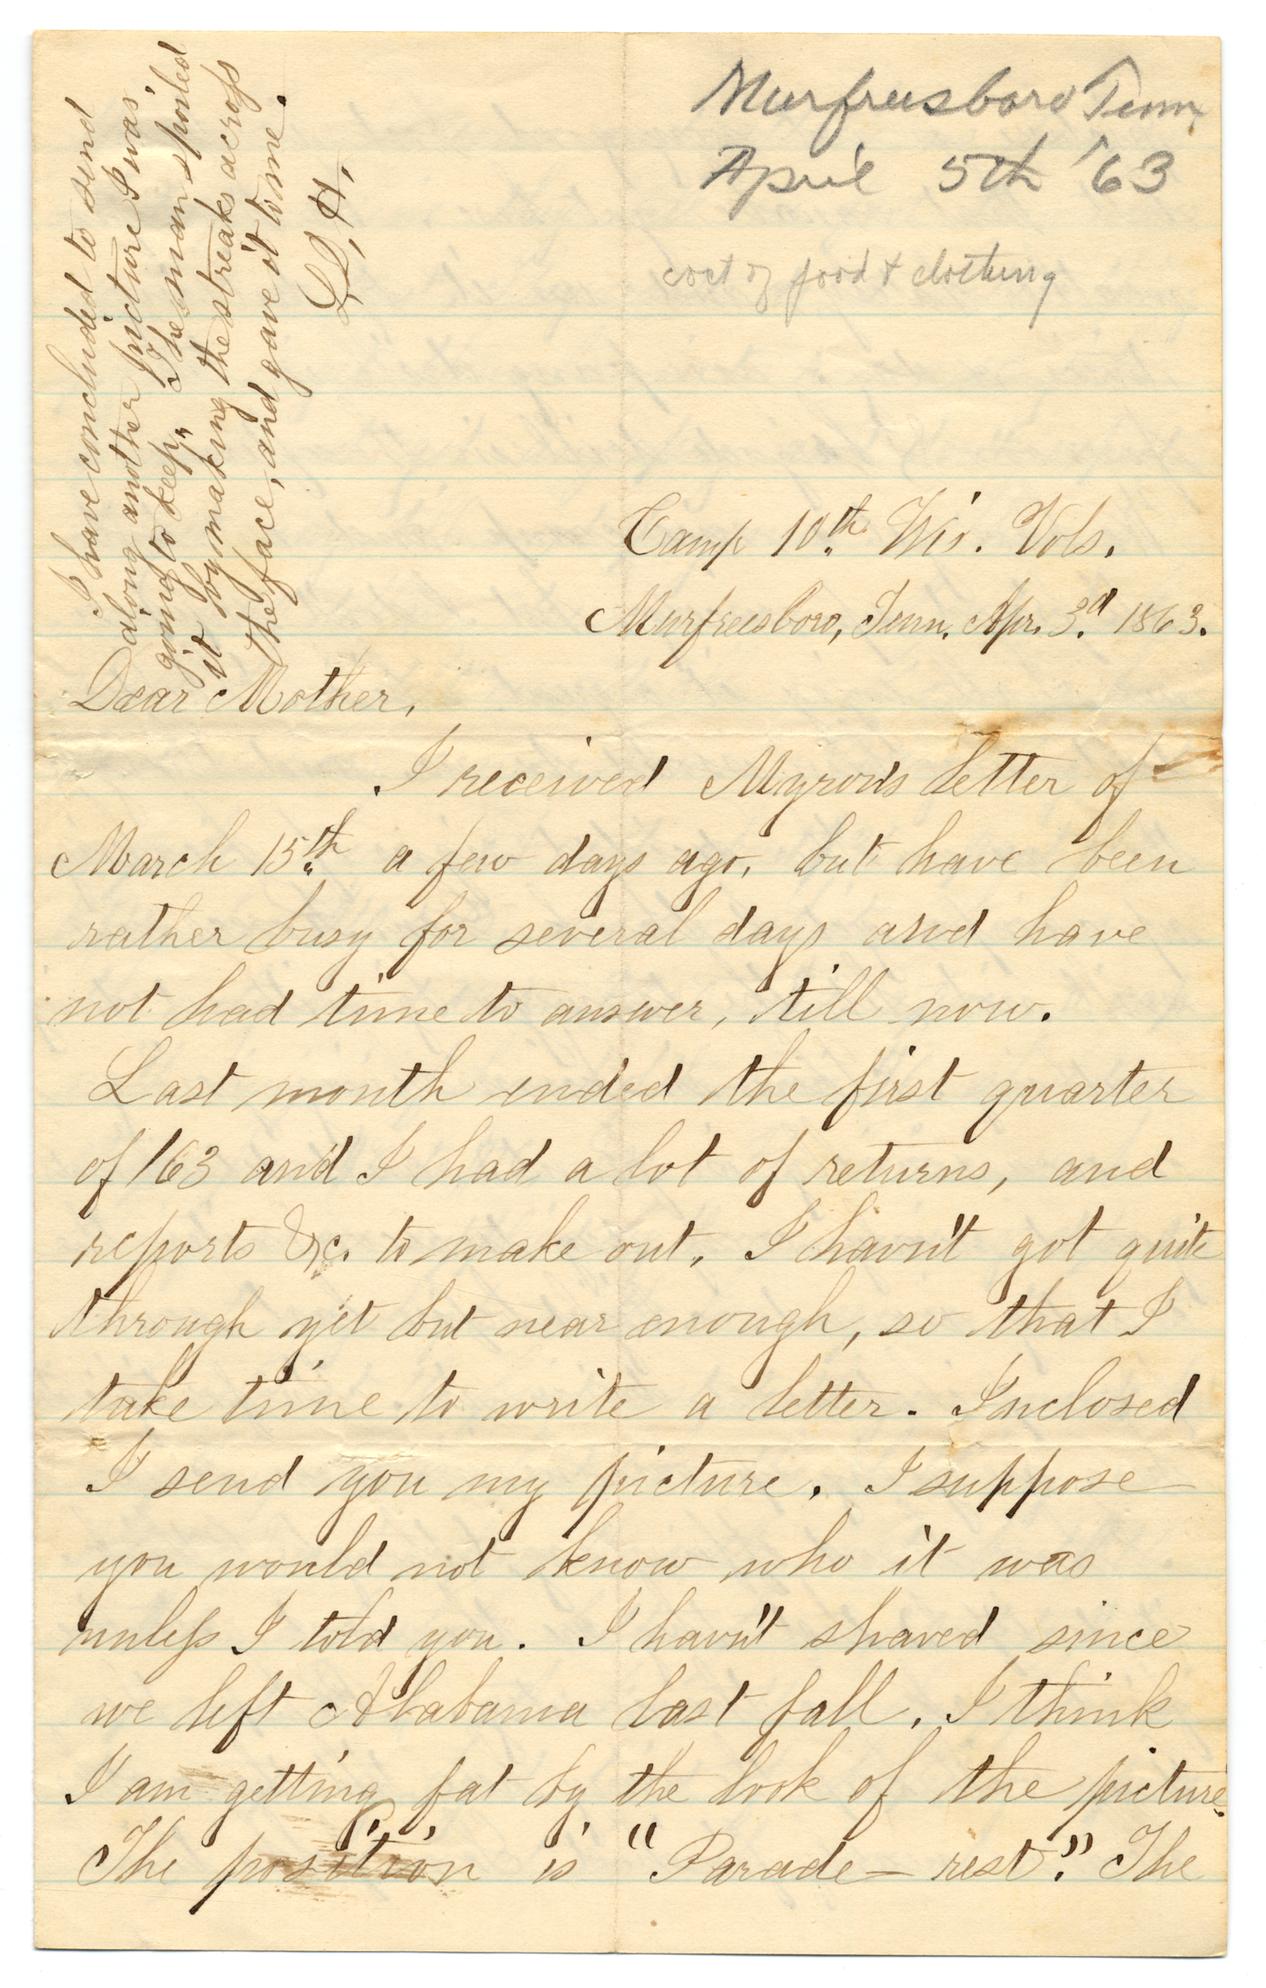 Murfreesboro Tenn
April 5th '63
cost of food & clothing
I have concluded to send
along another picture I was,
going to keep, The man spoiled
it by making the streaks across
the face, and gave it to me.
L, H,
Camp 10th Wis. Vols.
Murfreesboro, Tenn. Apr. 3d 1863.
Dear Mother,
I received Myron's letter of
March 15th a few days ago, but have been
rather busy for several days and have
not had time to answer, till now.
Last month ended the first quarter
of /63 and I had a lot of returns, and
reports &c. to make out, I havn't got quite
through yet but near enough, so that I
take time to write a letter. Inclosed
I send you my picture. I suppose
you would not know who it was
unless I told you. I havn't shaved since
we left Alabama last fall, I think
I am getting fat by the look of the picture.
The position is "Parade - rest." The